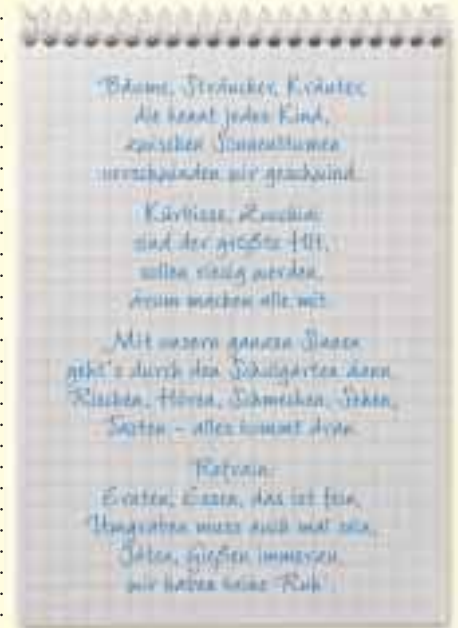 Bäume, Sträucher, Kräuter,
die kennt jedes Kind,
zwischen Sonnenblumen
verschwinden wir geschwind.
Kürbisse, Zucchini
sind der größte Hit,
sollen riesig werden,
drum machen alle mit.
Mit unsern ganzen Sinnen
geht's durch den Schulgarten dann.
Riechen, Hören, Schmecken, Sehen,
Tasten – alles kommt dran.
Refrain:
Ernten, Essen, das ist fein,
Umgraben muss auch mal sein,
Jäten, Gießen immerzu,
wir haben keine Ruh'.